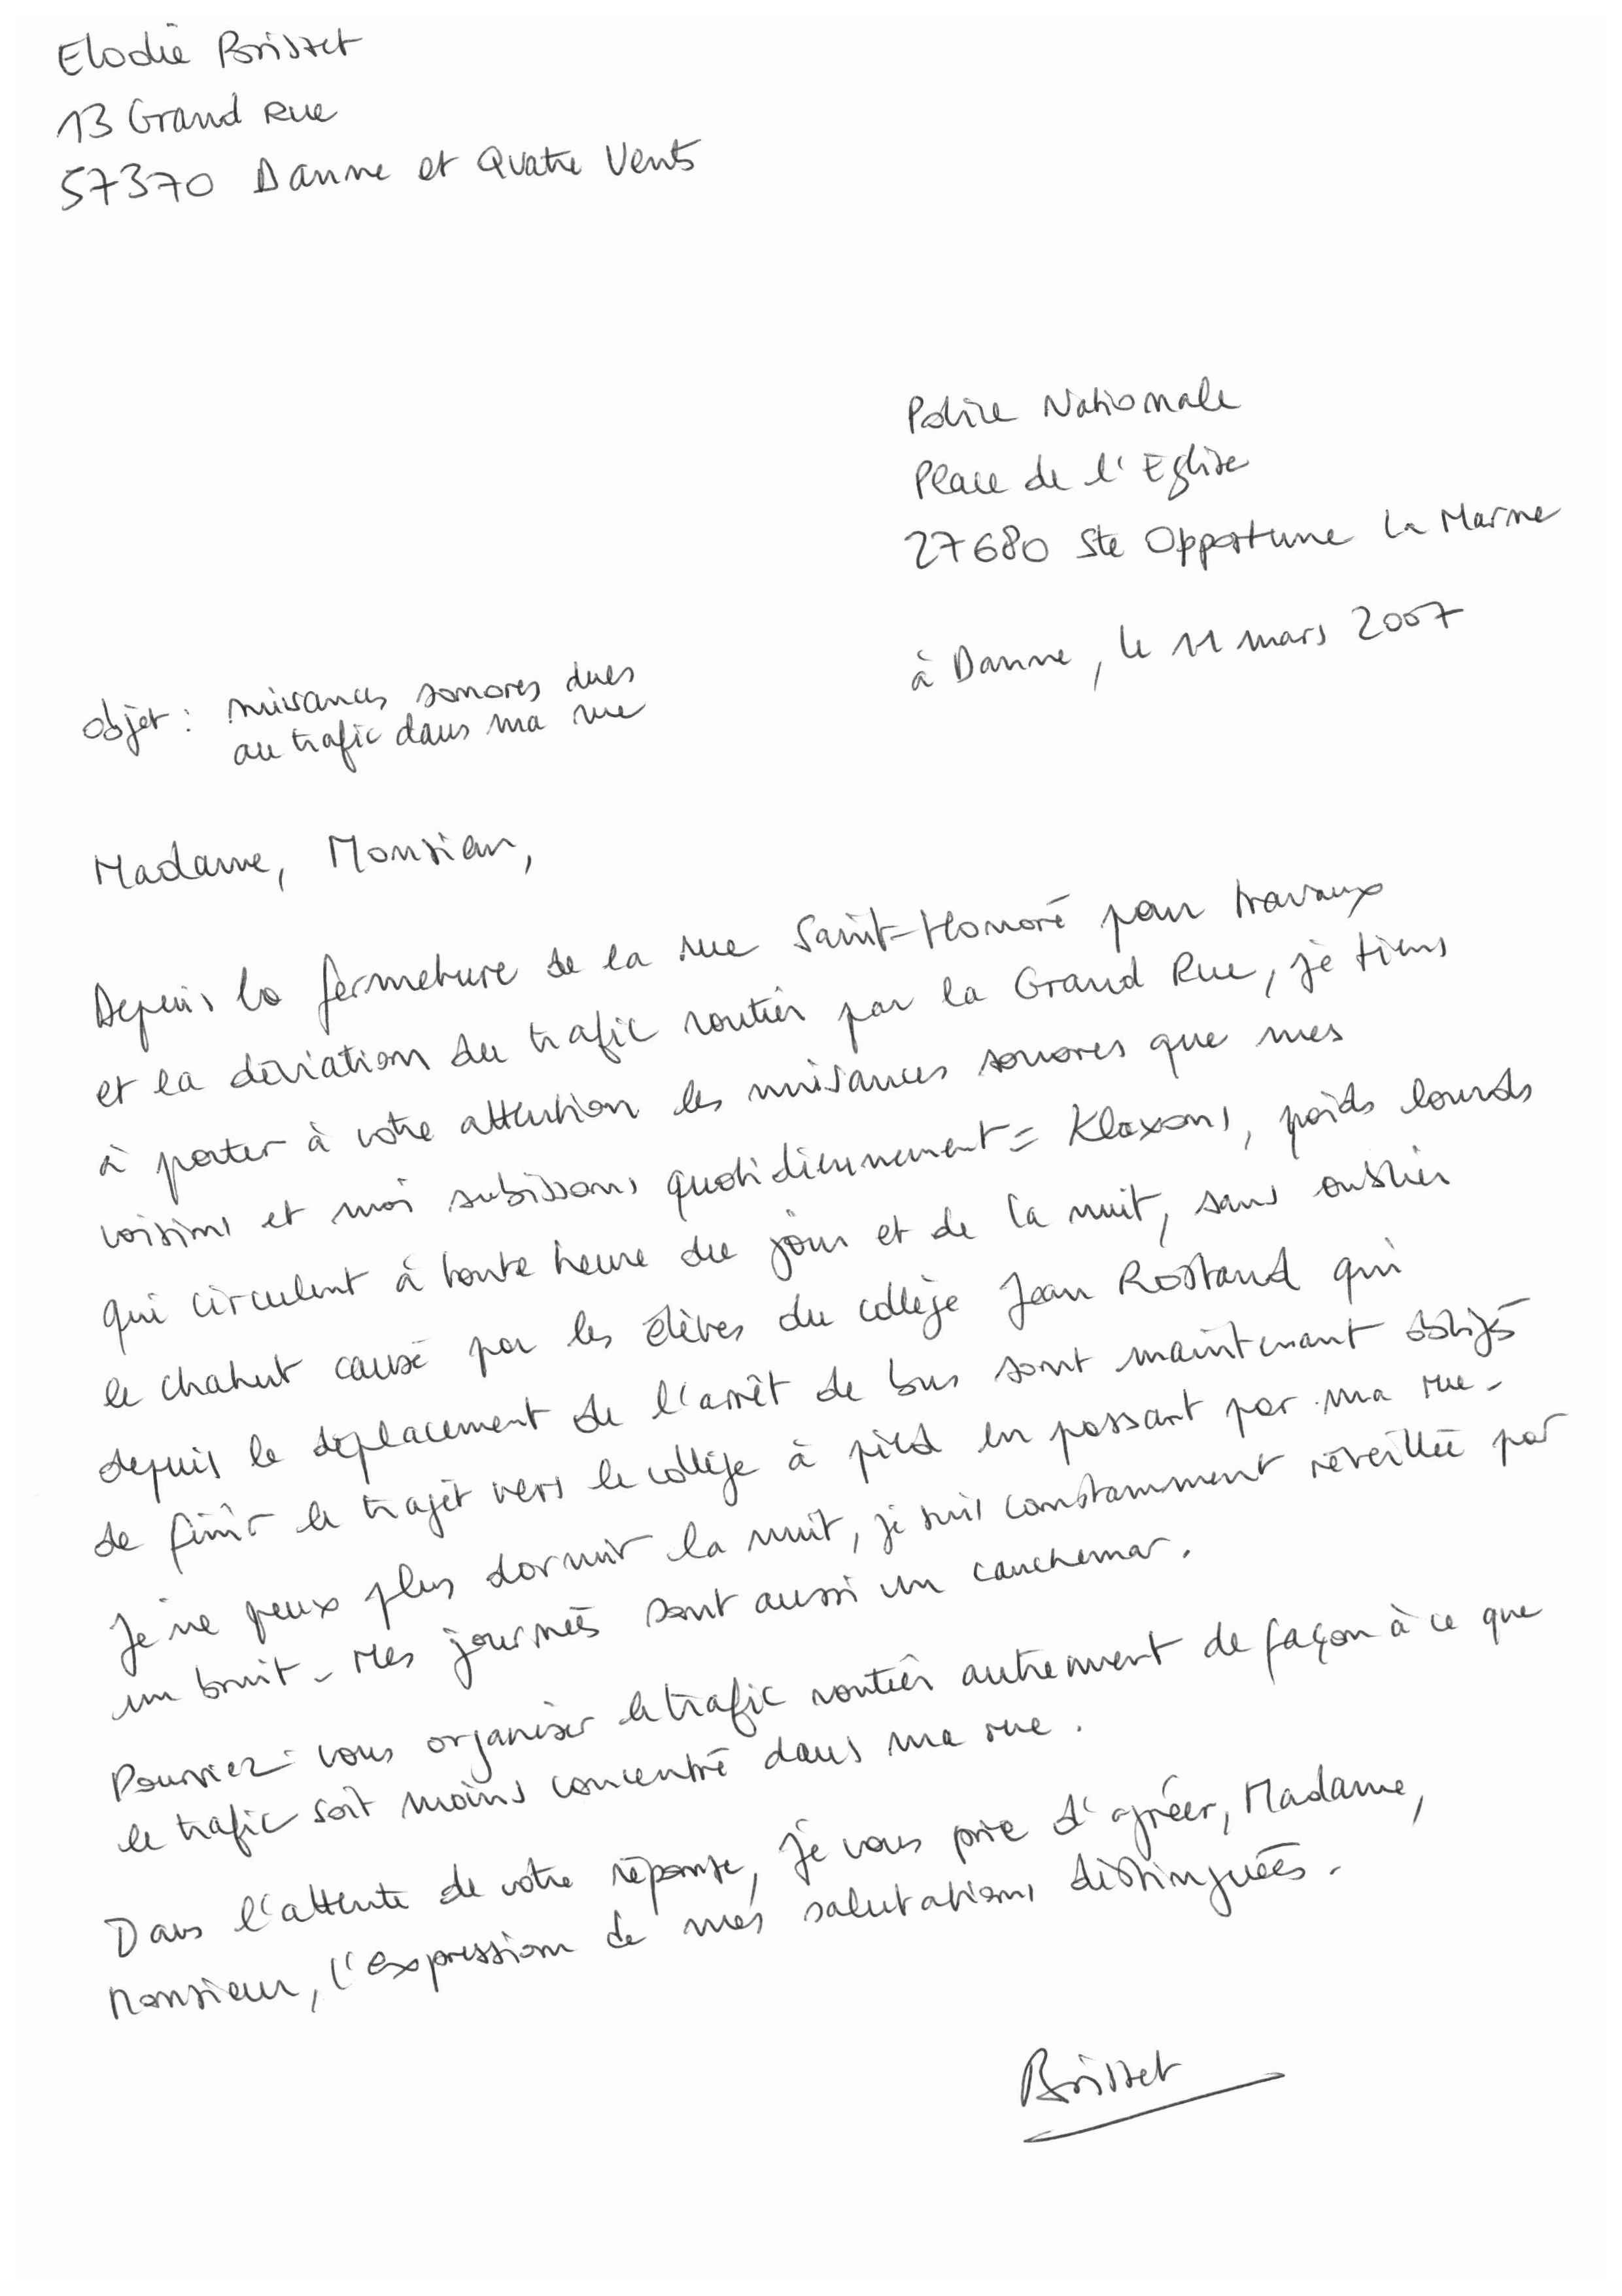 Elodie Brisset
13 Grand Rue
57370 Danne et Quatre Vents
Police Nationale
Place de l'Eglise
27680 Ste Opportune La Marne
à Danne, le 11 mars 2007
objet : nuisances sonores dues
au trafic dans ma rue
Madame, Monsieur,
Depuis la fermeture de la rue Saint-Honoré pour travaux
et la déviation du trafic routier par la Grand Rue, je tiens
à porter à votre attention les nuisances sonores que mes
voisins et moi subissons quotidiennement = Klaxons, poids lourds
qui circulent à toute heure du jour et de la nuit, sans oublier
le chahut causé par les élèves du collège Jean Rostand qui
depuis le déplacement de l'arrêt de bus sont maintenant obligés
de finir le trajet vers le collège à pied en passant par ma rue.
Je ne peux plus dormir la nuit, je suis constamment réveillée par
un bruit. Mes journées sont aussi un cauchemar.
Pourriez-vous organiser le trafic routier autrement de façon à ce que
le trafic soit moins concentré dans ma rue.
Dans l'attente de votre réponse, je vous prie d'agréer, Madame,
Monsieur, l'expression de mes salutations distinguées.
Brisset